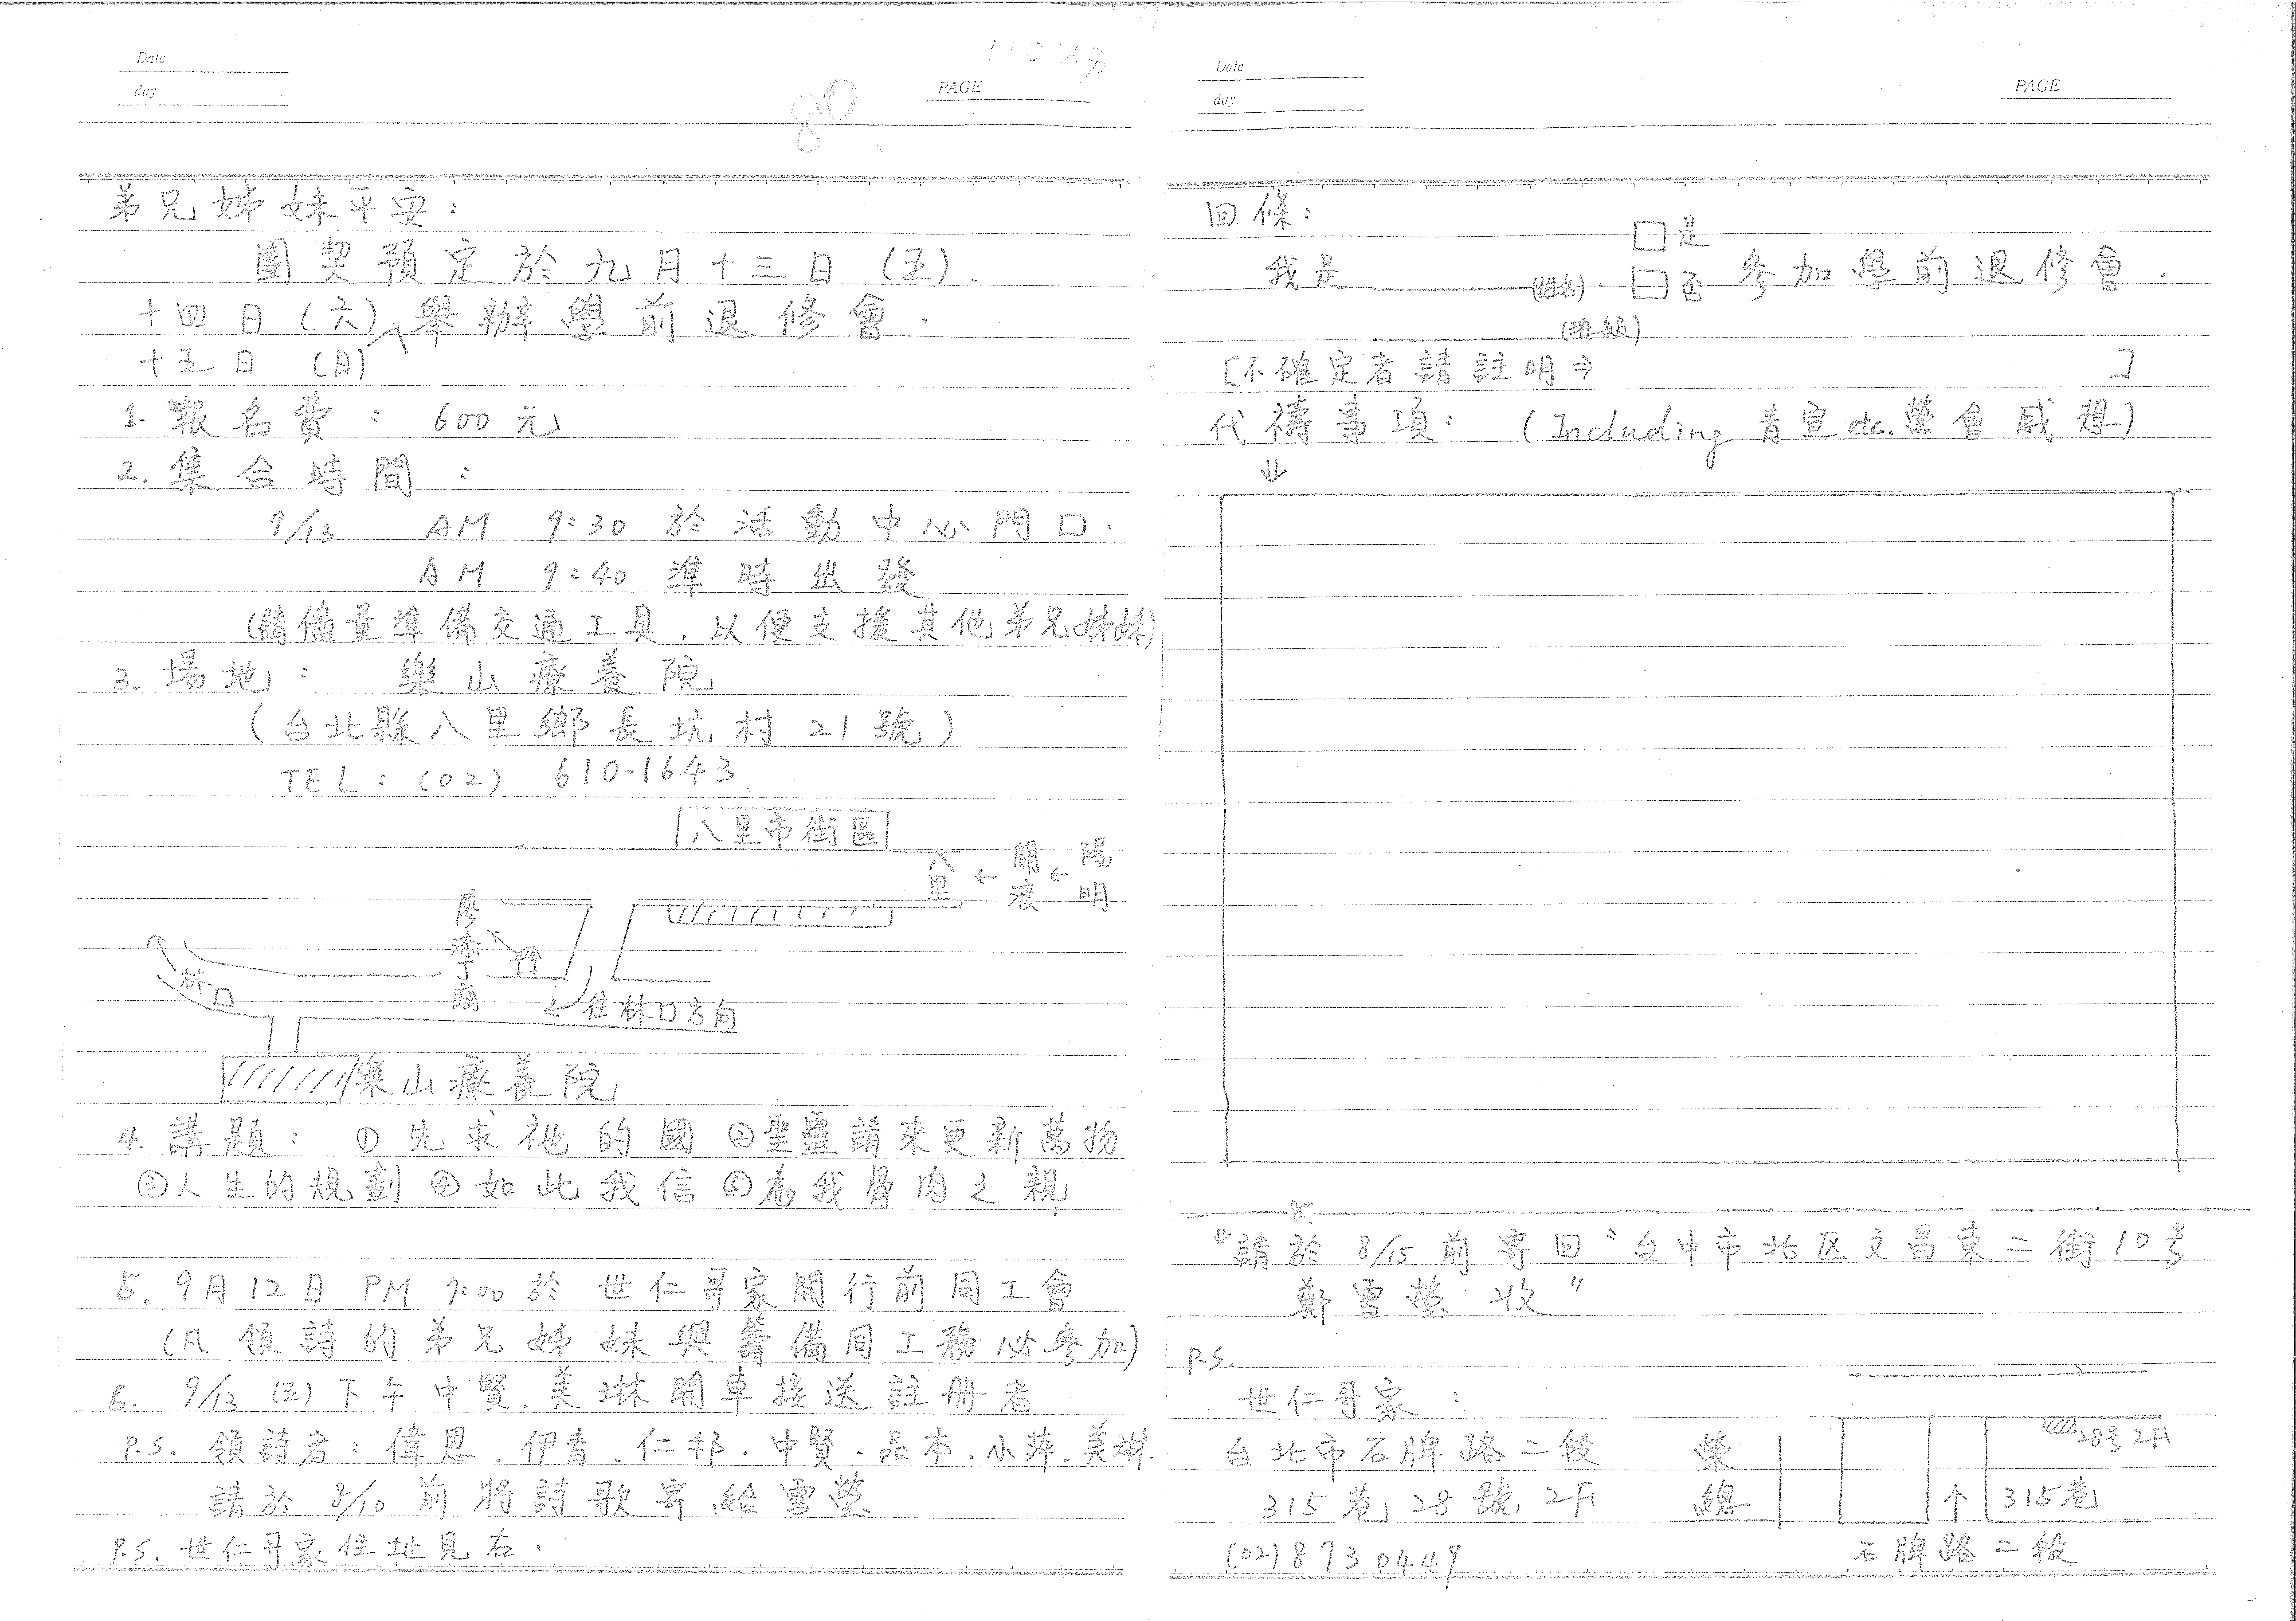 Date
day
80
PAGE
弟兄姊妹平安：
團契預定於九月十三日（五）.
十四日（六）舉辦學前退修會．
十五日 （日）
1. 報名費： 600元
2. 集合時間：
9/13 AM 9:30 於活動中心門口．
AM 9:40 準時出發
（請儘量準備交通工具．以便支援其他弟兄姊妹）
3. 場地： 樂山療養院
（台北縣八里鄉長坑村21號）
TEL：（02） 610-1643
八里市街區
八里 ← 關渡 ← 陽明
廖添丁廟
林口
往林口方向
樂山療養院
4. 講題： ① 先求祂的國 ②聖靈請來更新萬物
③人生的規劃 ④如此我信 ⑤為我骨肉之親
5. 9月12日 PM 7:00於世仁哥家開行前同工會
（凡領詩的弟兄姊妹與籌備同工務必參加）
6. 9/13（五）下午中賢．美琳開車接送註冊者
P.S. 領詩者：偉恩．伊青．仁邦．中賢．品本．小萍．美琳
請於8/10前將詩歌寄給雪瑩
P.S. 世仁哥家住址見右．
Date
day
PAGE
回條：
我是 （姓名）． □是 □否 參加學前退修會．
（班級）
[不確定者請註明⇒ ]
代禱事項： （Including 青宣etc.營會感想）
⇓
請於8/15前寄回“台中市北区文昌東二街10号
鄭雪瑩 收”
P.S.
世仁哥家：
台北市石牌路二段
315巷28號2F
（02）8730449
榮總
28号2F
↑ 315巷
石牌路二段